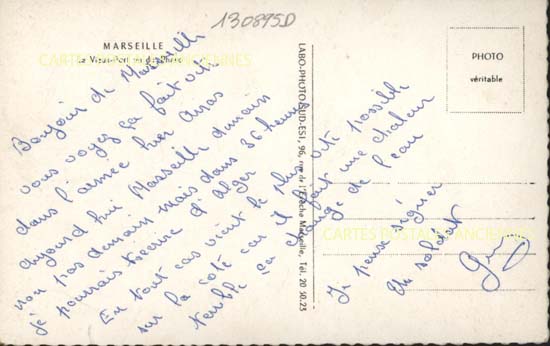 130895D
MARSEILLE
Le Vieux-Port vu du Pharo
CARTES POSTALES ANCIENNES
Bonjour de Marseille
vous voyez ça fait vite
dans l'armée hier
aujourd'hui Marseille demain
non pas demain mais dans 36 heures
je pourrais d'Alger
En tout cas vient le plus vite possible
sur la côte car il fait une chaleur
terrible ça change de l'eau
Je peux signer
Un soldat
LABO-PHOTO SUD-EST, 96, rue de l'Évêché Marseille, Tél. 20 50.23
PHOTO
véritable
CARTES POSTALES ANCIENNES